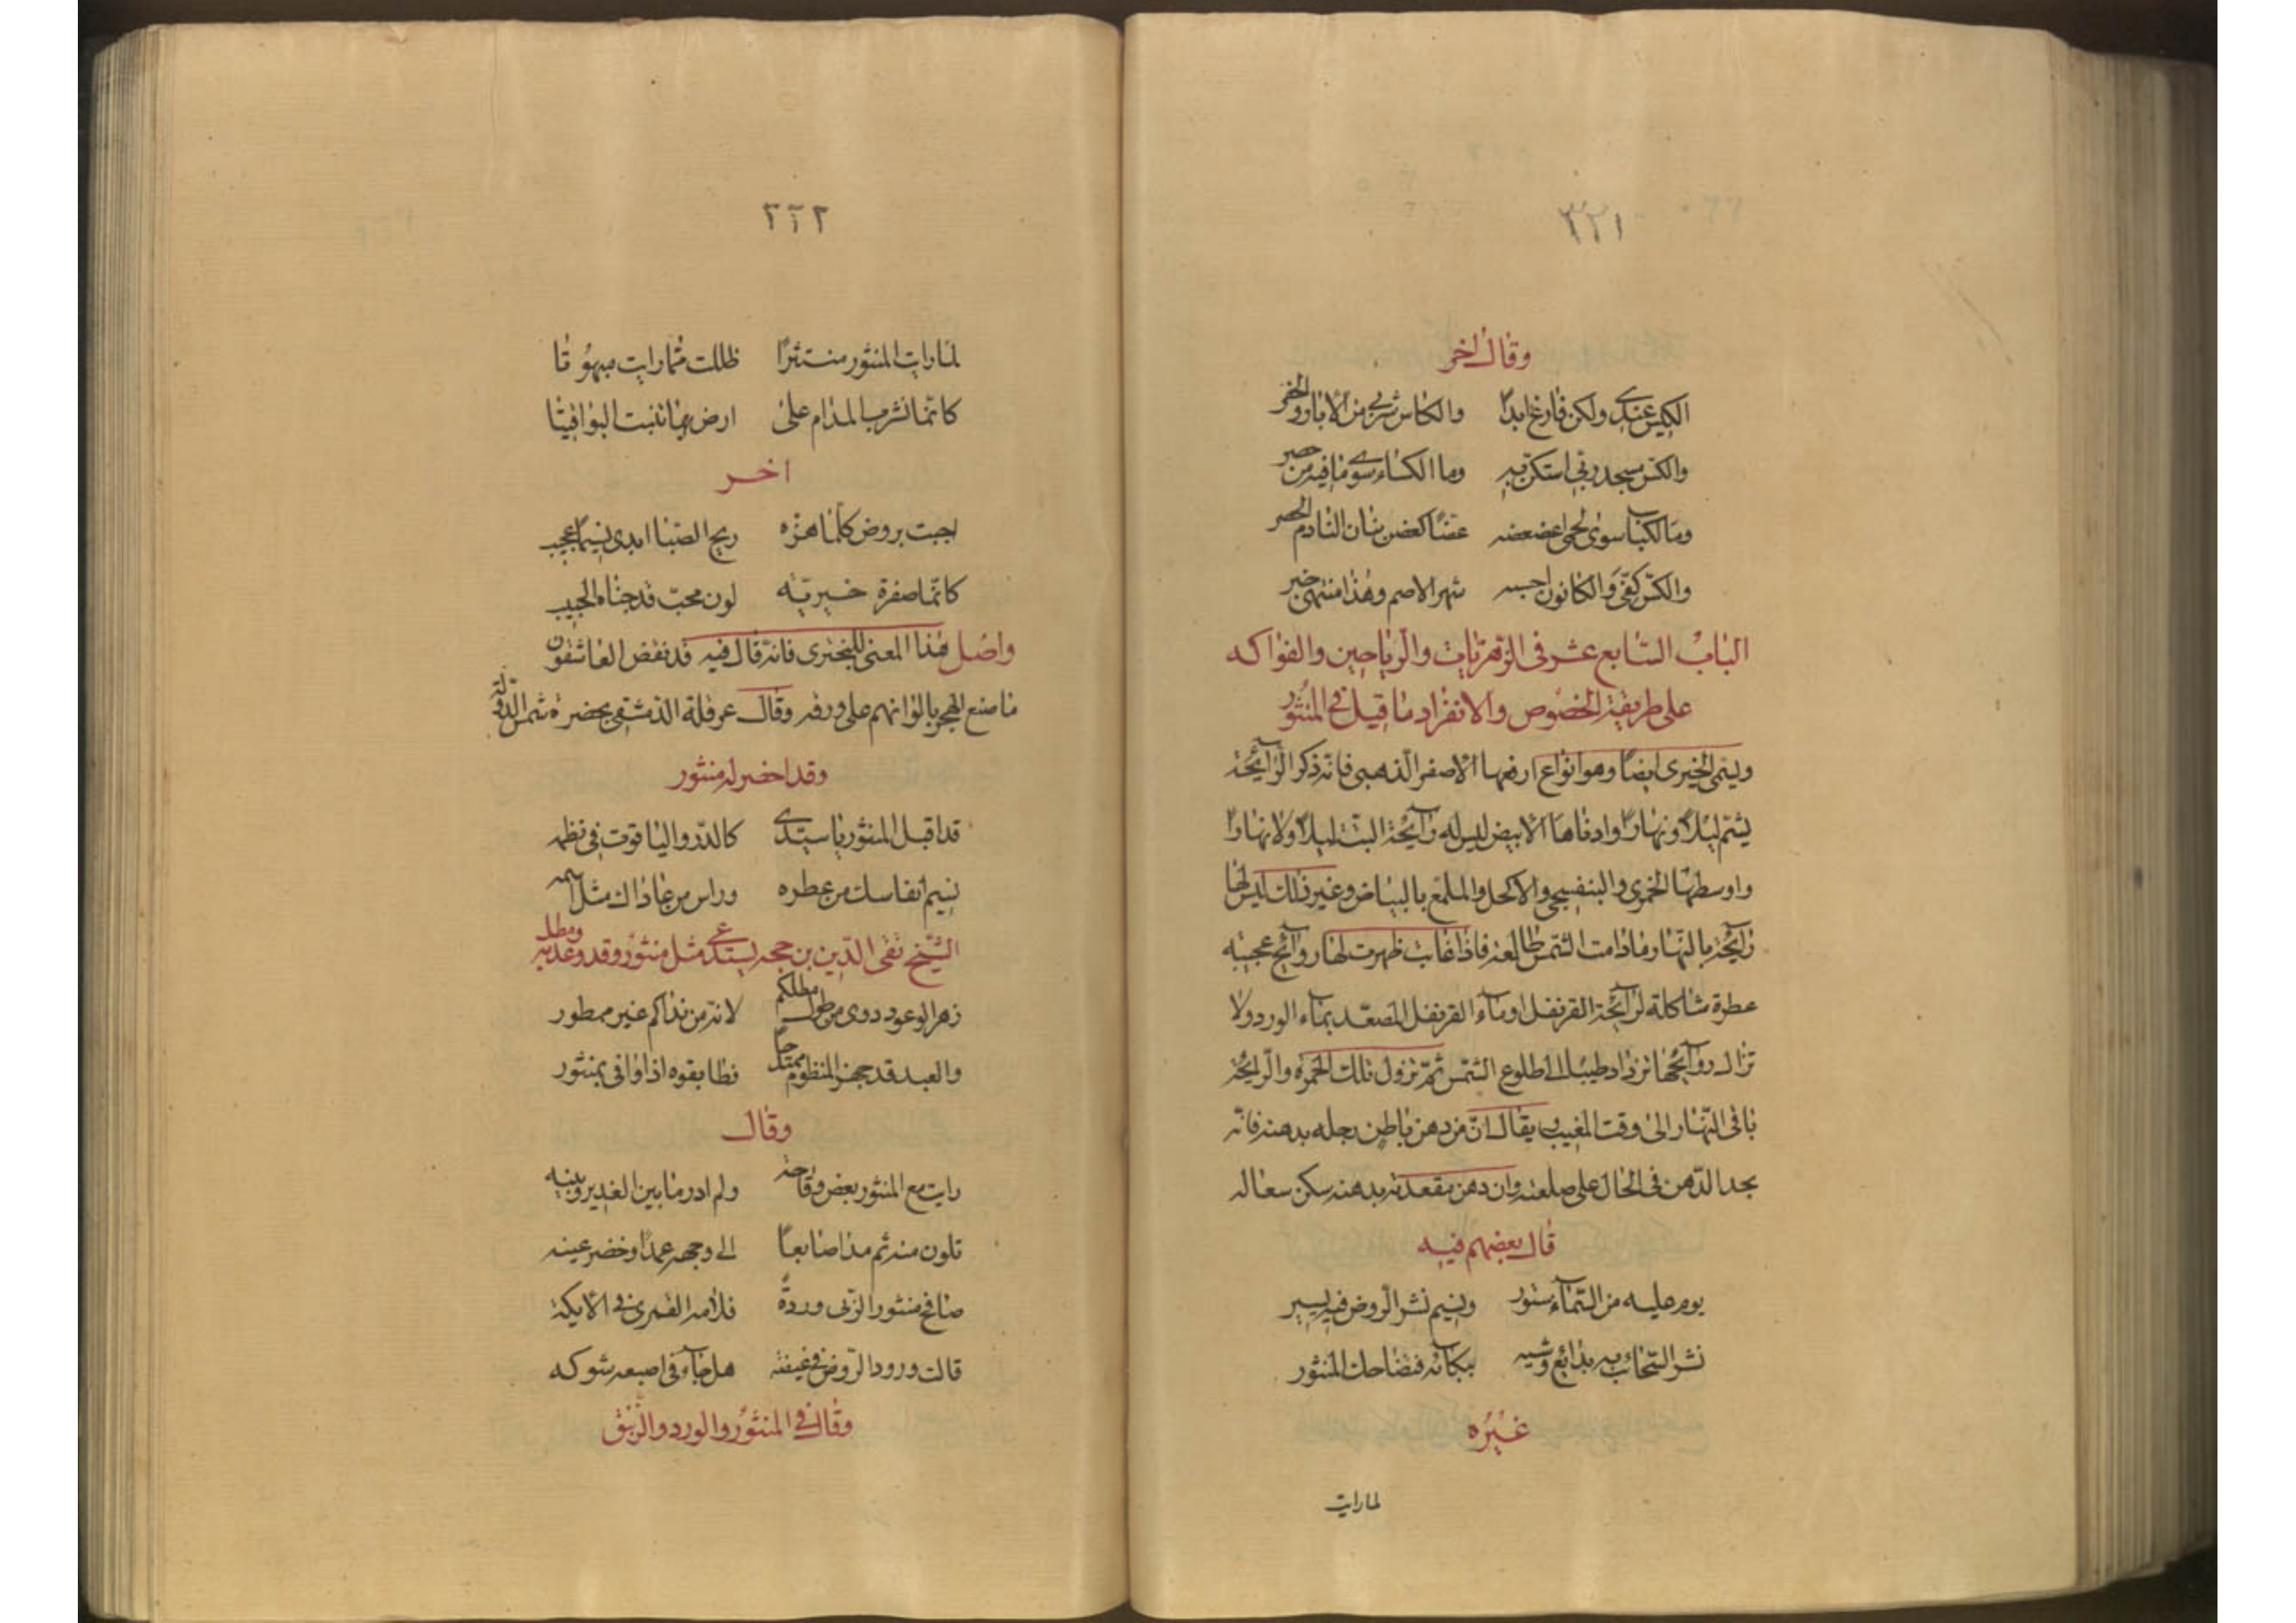 ٢٢١
وقال اخر
الكيس عندي ولكن فارغ ابدا والكاس شربي من الابار والحفر
والكن مسجد ربي استكن به وما الكساء سوى ما فيه من حصر
وما الكباب سوى لحمي اعضعضه عضا كعض بنان النادم الحصر
والكن كفي والكانون احسبه شهر الاصم وهذا منتهى خبر
الباب السابع عشر في الزهريات والرياحين والفواكه
على طريقة الخصوص والانفراد ما قيل في المنثور
ويسمى الخيرى ايضا وهو انواع ارفعها الاصفر الذهبي فانه ذكر الرآئحة
يشم ليلا ونهارا وادناها الابيض ليس له رآئحة البتة ليلا ولا نهارا
واوسطها الخمرى والبنفسجى والاكحل والملمع بالبياض وغير ذلك ليس لها
رآئحة بالنهار مادامت الشمس طالعة فاذا غابت ظهرت لها روآئح عجيبه
عطرة شاكلة لرآئحة القرنفل اومآء القرنفل المصعد بمآء الورد ولا
تزال روآئحها تزداد طيبا الى طلوع الشمس ثم تزول تلك الخمرة والرايحة
باقى النهار الى وقت المغيب ويقال ان من دهن باطن رجله بدهنه فانه
يجد الدهن فى الحال على صلعته وان دهن مقعدته بدهنه سكن سعاله
قال بعضهم فيه
يوم عليه من السمآء ستور ونسيم نشر الروض فيه يسير
نشر السحاب به بدائع وشيه ببكآئه فتضاحك المنثور
غيره
لما رايت
٢٢٢
لما رايت المنثور منتثرا ظللت مما رايت مبهوتا
كانما نشرب المدام على ارض بها تنبت اليواقيتا
اخر
اجبت بروض كلما هزه ريح الصبا ابدى نسيما عجيب
كانما صفرة خيريه لون محب قد جفاه الحبيب
واصل هذا المعنى للبحترى فانه قال فيه قد نفض العاشقون
ما صنع الهجر بالوانهم على ورقه وقال عرقلة الدمشقى بحضرة شمس الدولة
وقد احضر له منثور
قد اقبل المنثور يا سيدي كالدر والياقوت في نظمه
نسيم انفاسك من عطره وراس من عاداك مثل اسمه
الشيخ تقى الدين بن حجه يستدعي مثل منثور وقد وعد به ومطل
زهر الوعود ذوى من طول مطلكم لانه من نداكم غير ممطور
والعبد قد جهز المنظوم ممتدحا فطابقوه اذا وافى بمنثور
وقال
رايت مع المنثور بعض وقاحة ولم ادر ما بين الغدير وبينه
تلون منه ثم مد اصابعا الى وجهه عمدا وخضر عينه
صافح منثور الربى وردة فلامه القمرى في الايكة
قالت ورود الروض في غيضه هل جآء فى اصبعه شوكه
وقال في المنثور والورد والزنبق